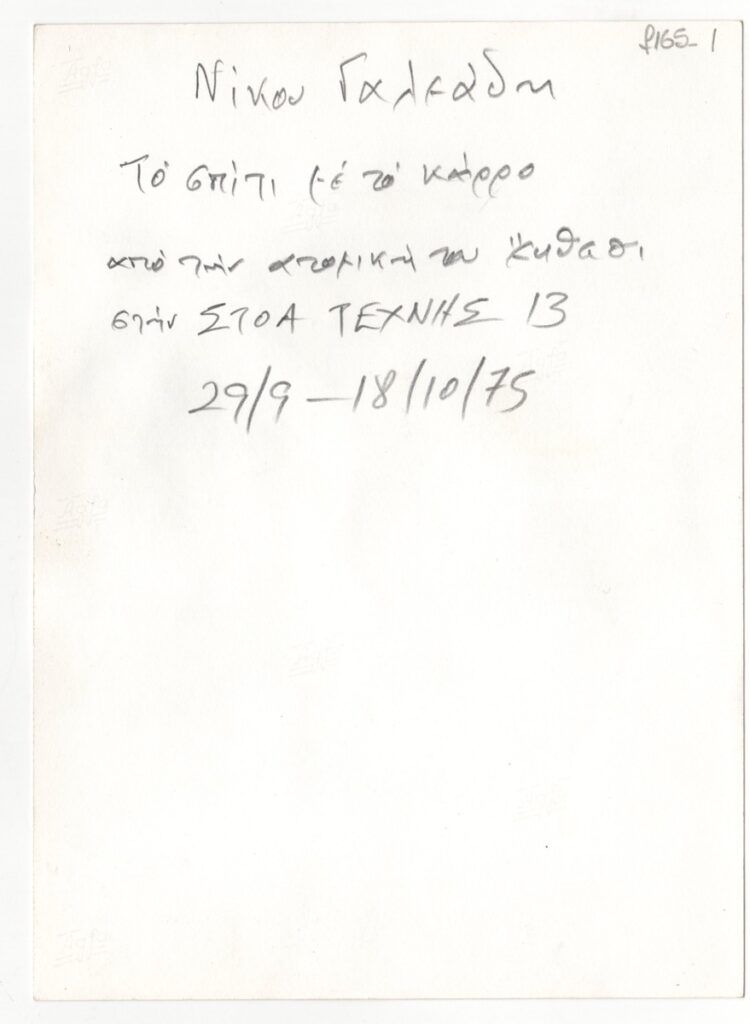 f165-1
Νίκου Γαλεάδη
Τό σπίτι μέ τό κάρρο
από τήν ατομική του έκθεση
στήν ΣΤΟΑ ΤΕΧΝΗΣ 13
29/9 – 18/10/75